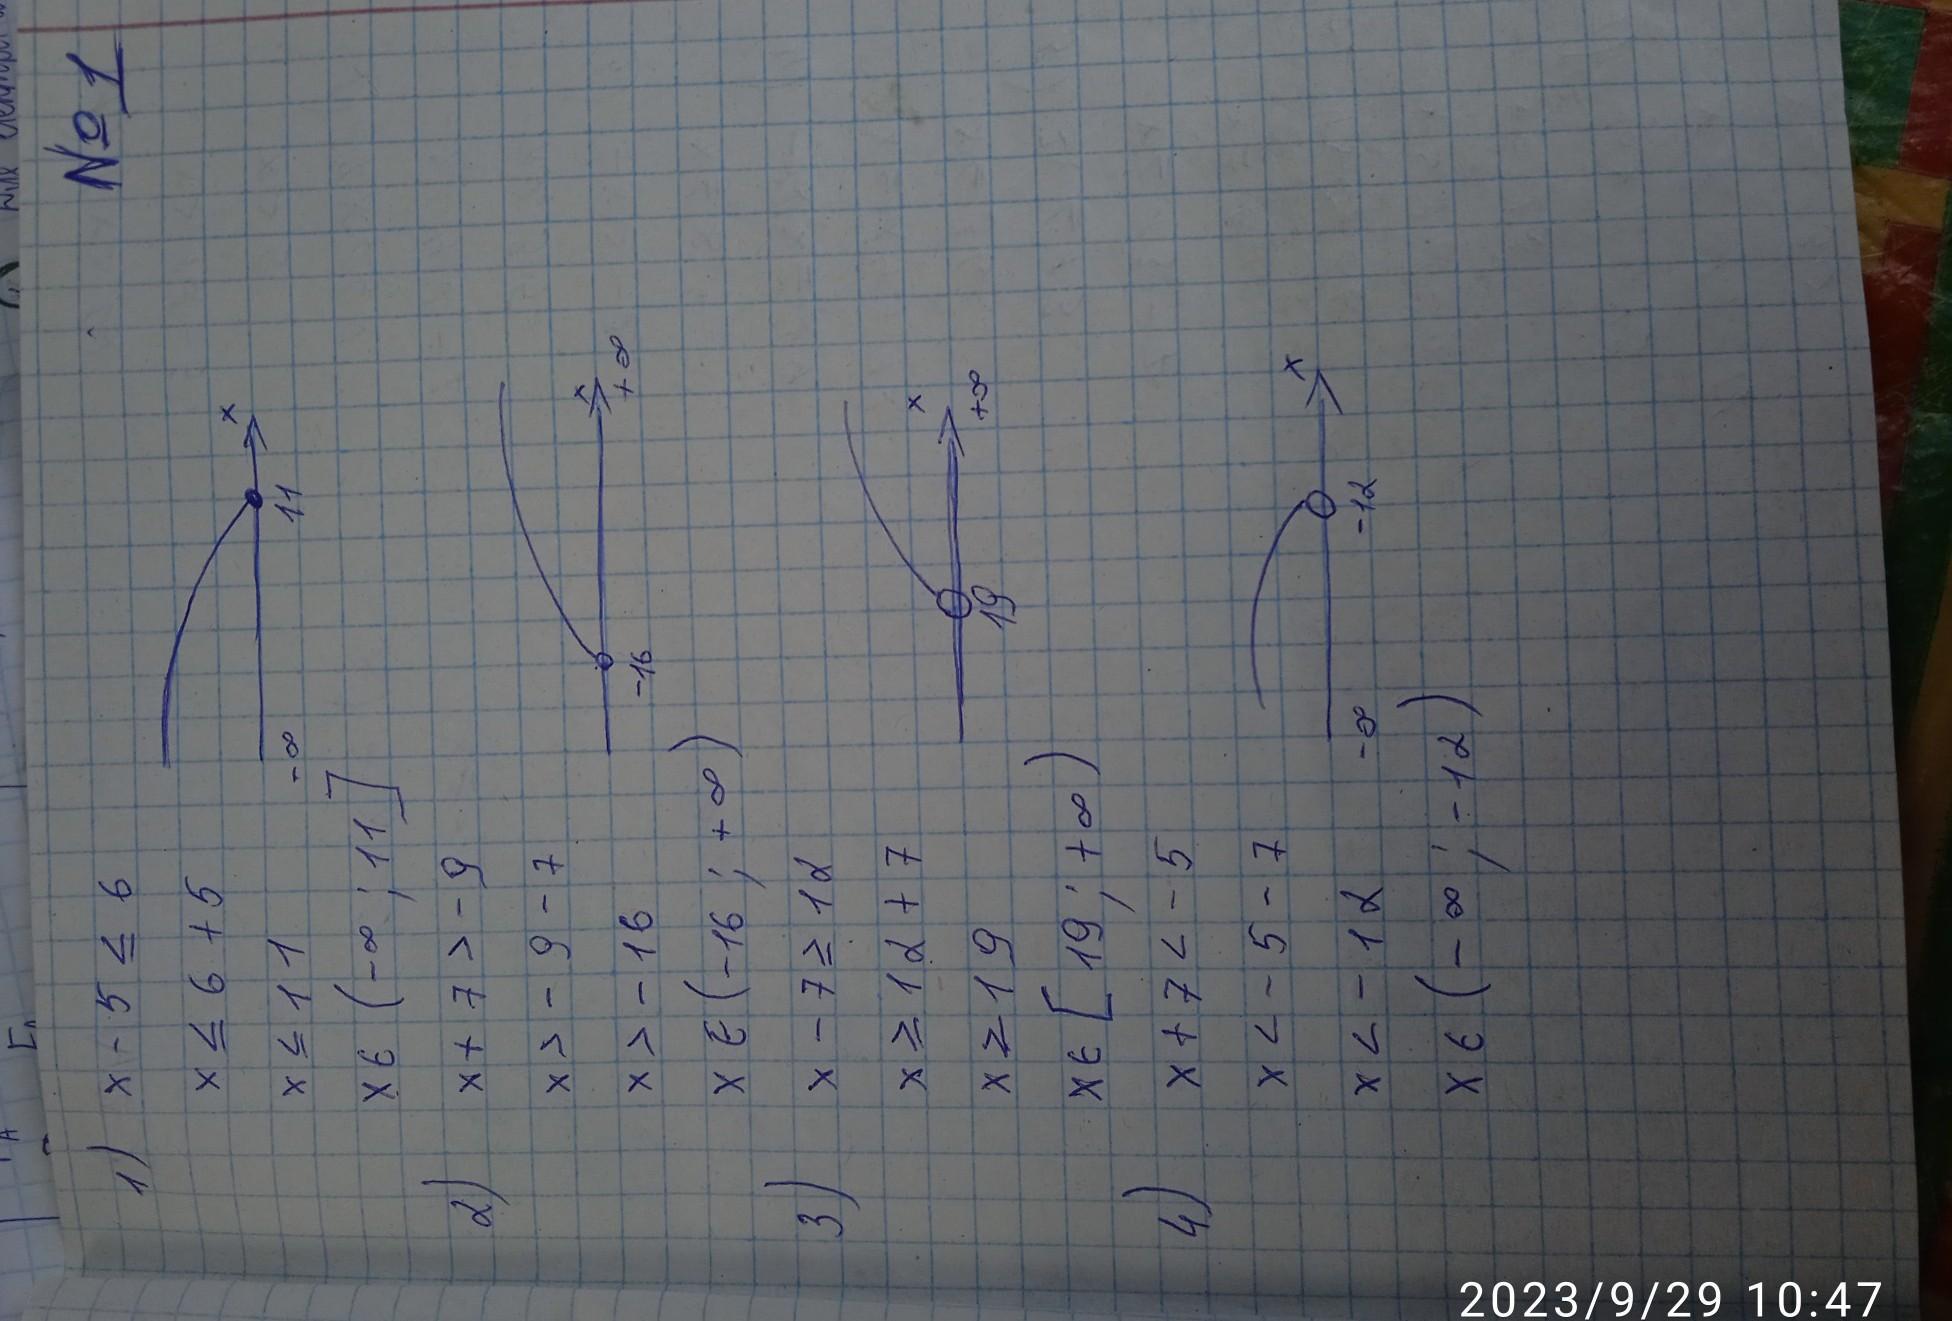 № 1
1) x - 5 ≤ 6
x ≤ 6 + 5
x ≤ 11
-∞ 11 x
x ∈ (-∞ ; 11]
2) x + 7 > -9
x > -9 - 7
x > -16
-16 x +∞
x ∈ (-16 ; +∞)
3) x - 7 ≥ 12
x ≥ 12 + 7
x ≥ 19
19 x +∞
x ∈ [19 ; +∞)
4) x + 7 < -5
x < -5 - 7
x < -12
-∞ -12 x
x ∈ (-∞ ; -12)
2023/9/29 10:47